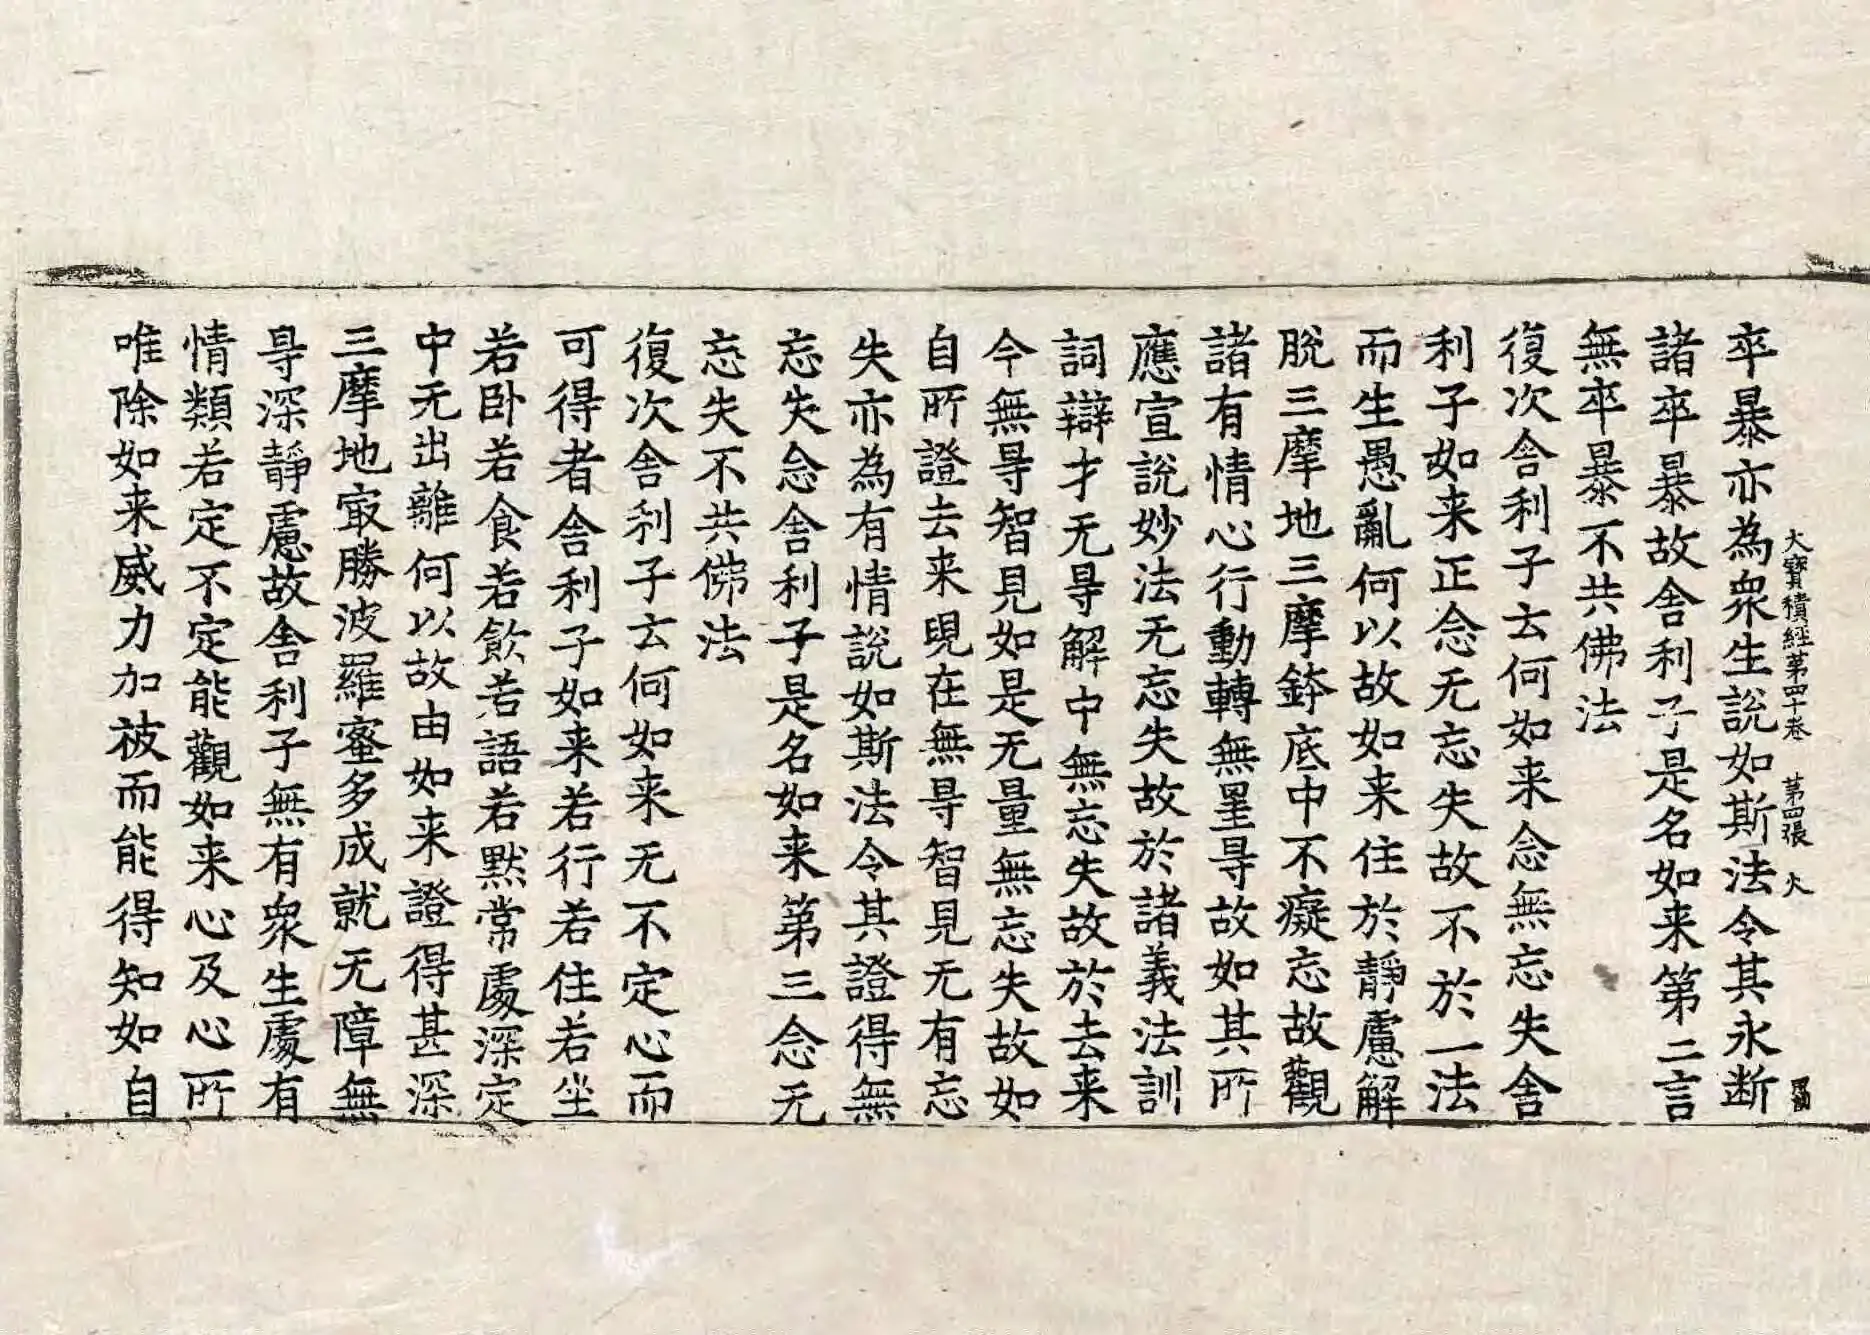 大寶積經第四十卷 第四張 大
卒暴亦為衆生說如斯法令其永断
諸卒暴故舎利子是名如来第二言
無卒暴不共佛法
復次舎利子云何如来念無忘失舎
利子如来正念无忘失故不於一法
而生愚亂何以故如来住於靜慮解
脫三摩地三摩鉢底中不癡忘故觀
諸有情心行動轉無罣㝵故如其所
應宣說妙法无忘失故於諸義法訓
詞辯才无㝵解中無忘失故於去来
今無㝵智見如是无量無忘失故如
自所證去来現在無㝵智見无有忘
失亦為有情說如斯法令其證得無
忘失念舎利子是名如来第三念无
忘失不共佛法
復次舎利子云何如来无不定心而
可得者舎利子如来若行若住若坐
若卧若食若飲若語若默常處深定
中无出離何以故由如来證得甚深
三摩地㝡勝波羅蜜多成就无障無
㝵深靜慮故舎利子無有衆生處有
情類若定不定能觀如来心及心所
唯除如来威力加被而能得知如自